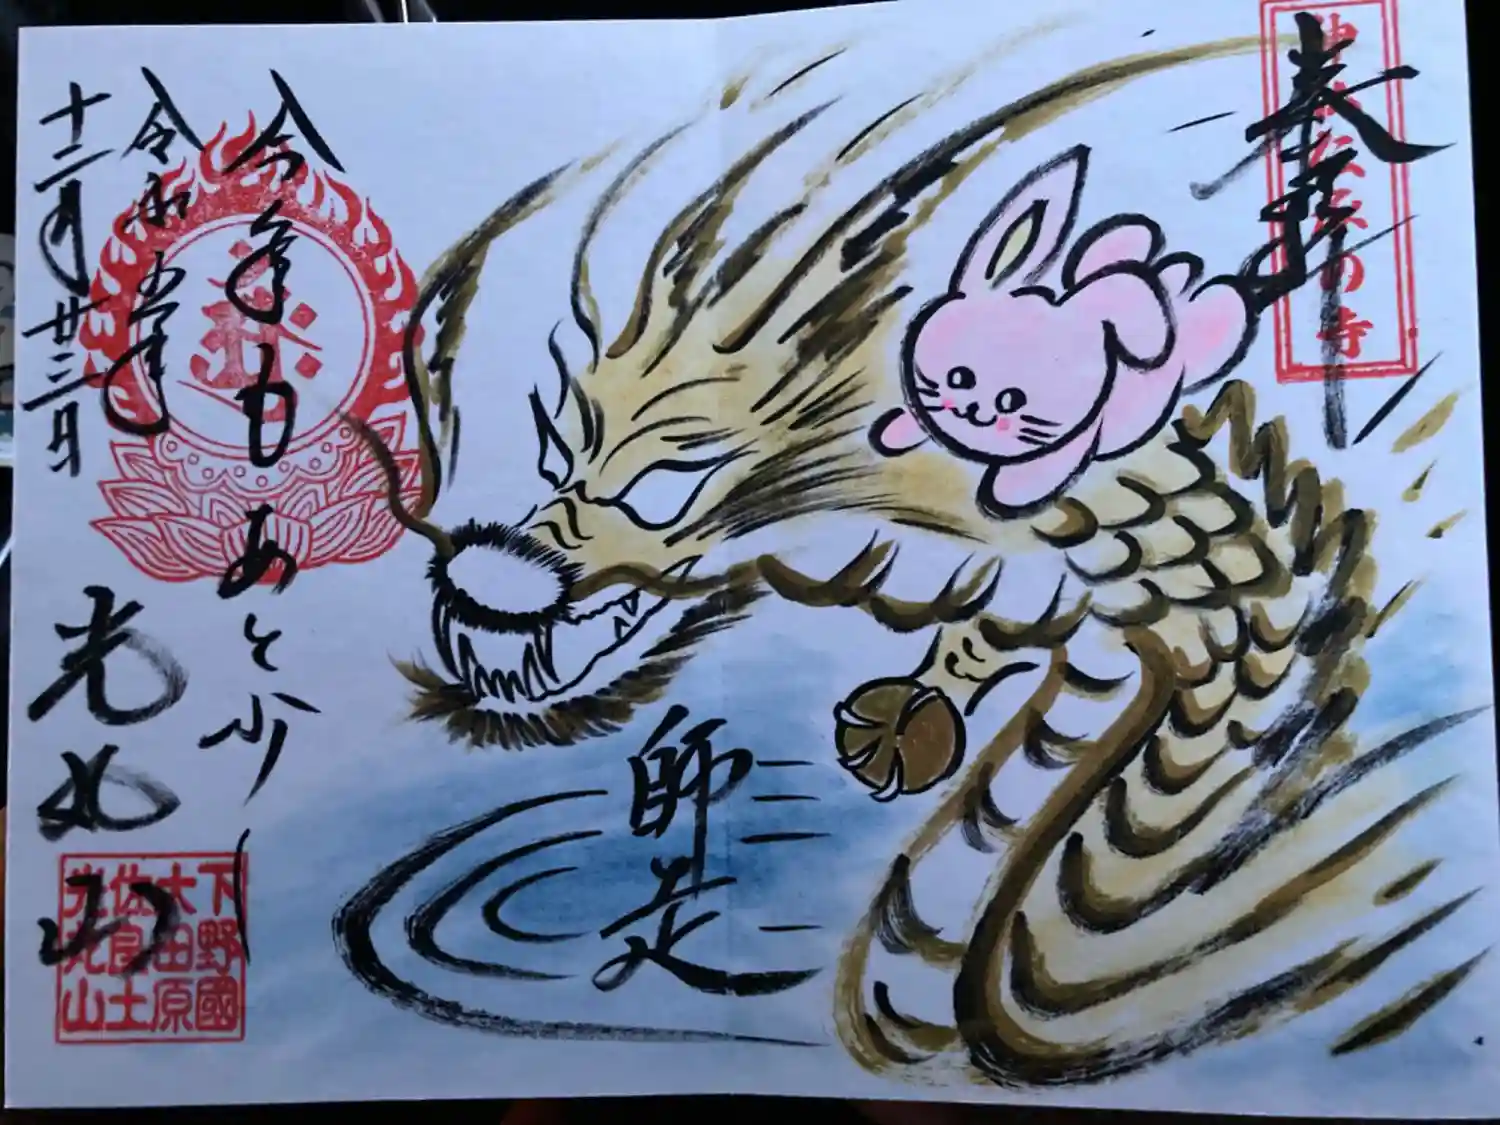 奉拝
師走
今年もあと少し
令和五年
十二月廿三日
光丸山
下野國
大田原
佐良土
光丸山